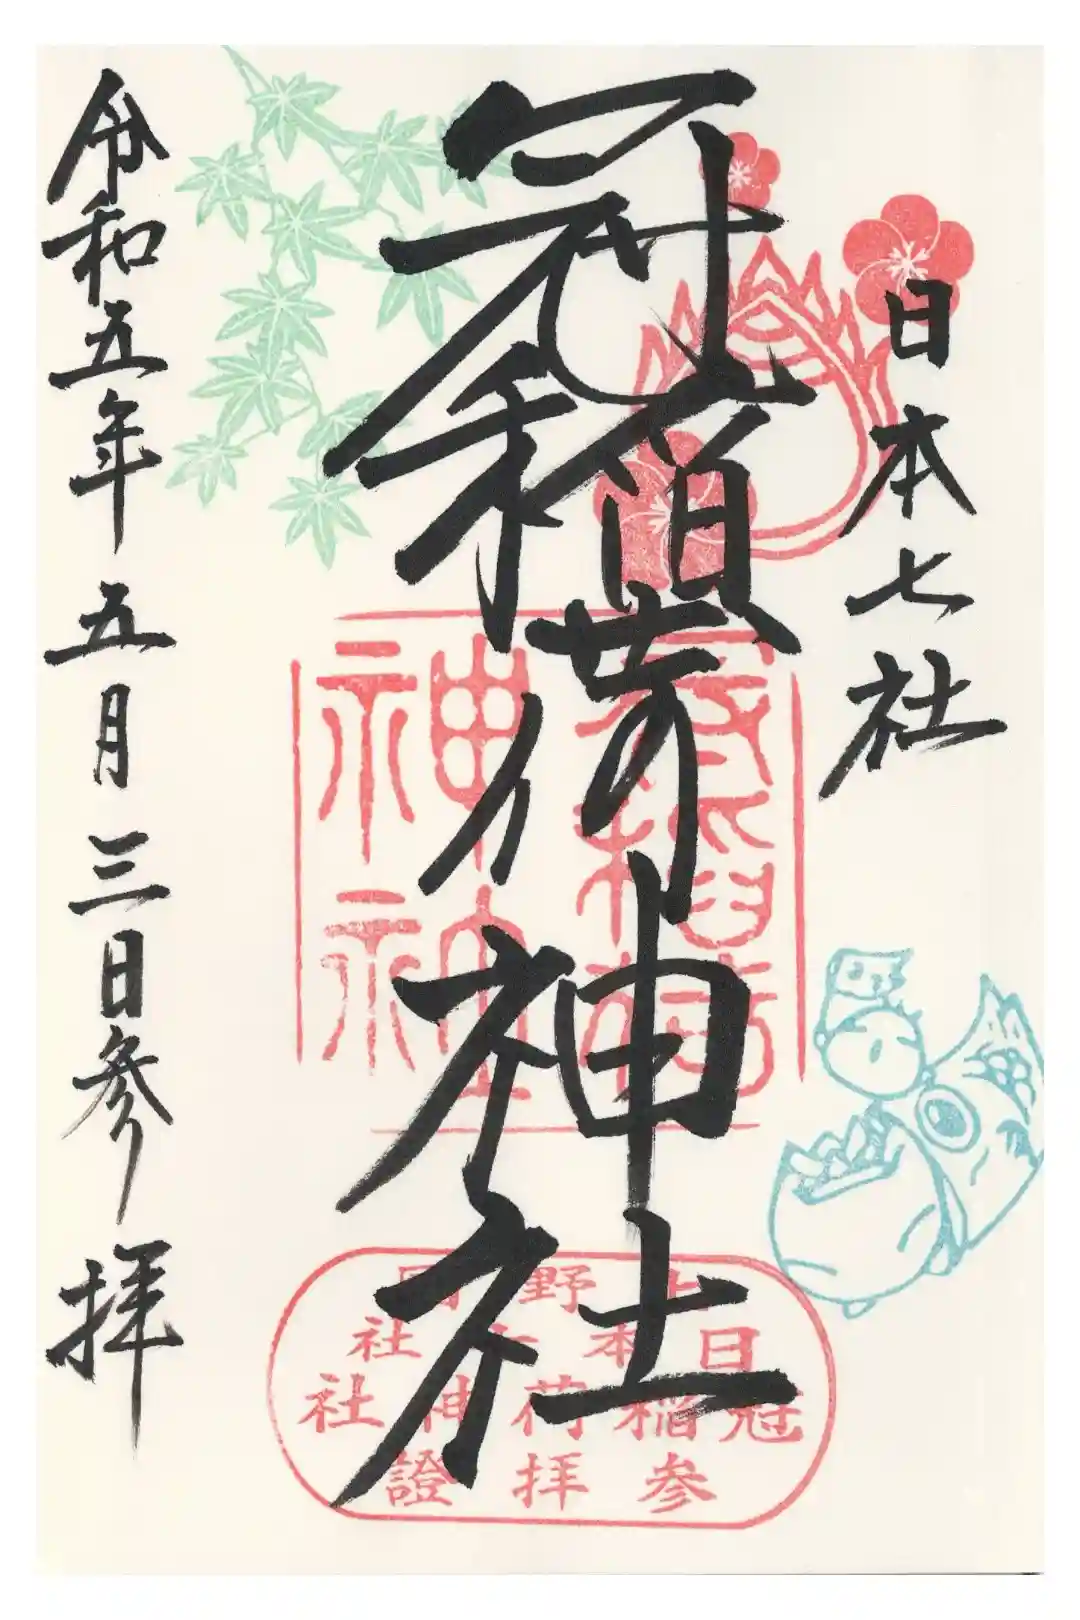 日本七社
冠稲荷神社
令和五年五月三日参拝
冠稲荷
神社
日本七社
冠稲荷神社
参拝證